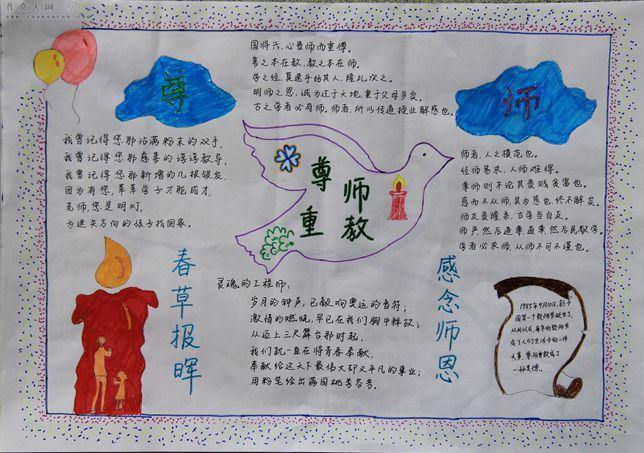 作文人网
尊
师
国将兴，心贵师而重傅。
善之本在教，教之本在师。
学之经，莫速乎好其人，隆礼次之。
明师之恩，诚为过于天地，重于父母多矣。
古之学者必有师。师者，所以传道授业解惑也。
我曾记得您那沾满粉末的双手，
我曾记得您那慈善的谆谆教导，
我曾记得您那新增的几根银发，
因为有您，莘莘学子才能成才，
老师，您是明灯，
为迷失方向的孩子找回家。
尊师
重教
师者，人之模范也。
经师易求，人师难得。
尊师则不论其贵贱贫富也。
惑而不从师，其为惑也，终不解矣。
师严然后道尊，道尊然后民敬学。
学者必求师，从师不可不谨也。
春草报晖
灵魂的工程师：
岁月的钟声，已敲响奥运的音符；
激情的燃烧，早已在我们胸中释放；
从迈上三尺舞台那时起，
我们就一直在将青春奉献，
奉献给这天下最伟大却又平凡的事业；
用粉笔绘出满园桃李芬芳。
感念师恩
1985年9月10日，新中
国第一个教师节诞生了，
从此以后，每年的教师节
成了人们生活中的一件
大事，尊师重教成了
一种美德。